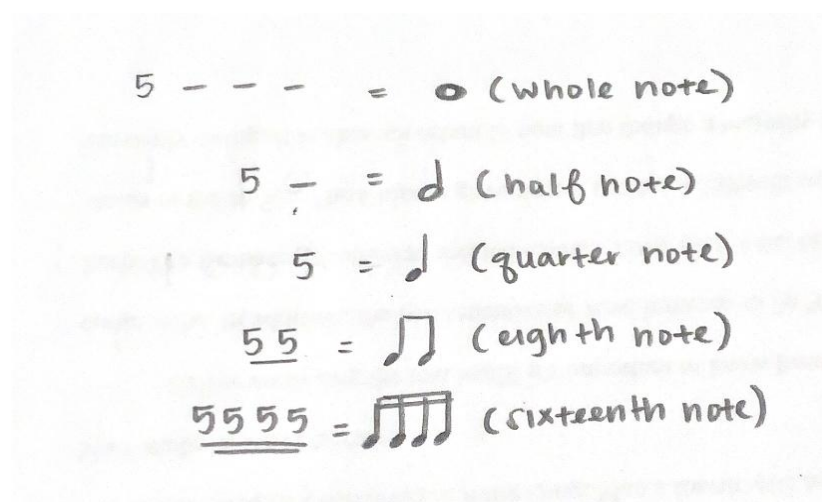 5 – – – = 𝅝 (whole note)
5 – = 𝅗𝅥 (half note)
5 = ♩ (quarter note)
55 = ♫ (eighth note)
5555 = ♬♬ (sixteenth note)